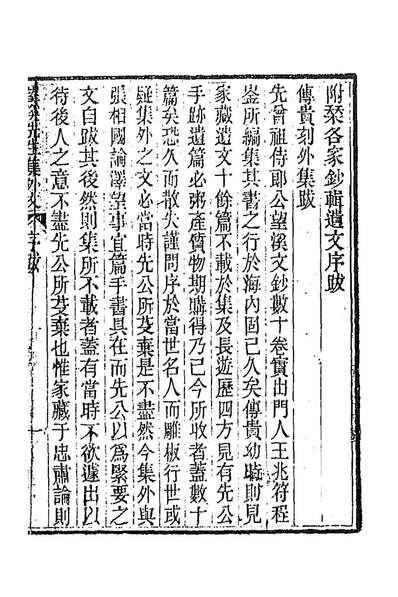 附琹各家鈔輯遺文序跋
傳貴刻外集跋
先曾祖侍郎公望溪文鈔數十卷實出門人王兆符程
崟所編集其書之行於海內固已久矣傳貴幼時則見
家藏遺文十餘篇不載於集及長遊歷四方見有先公
手跡遺篇必粥產質物期購得乃已今所收者蓋數十
篇矣恐久而散失謹問序於當世名人而雕板行世或
疑集外之文必當時先公所芟棄是不盡然今集外與
張相國論澤望事宜篇手書具在而先公以爲緊要之
文自跋其後然則集所不載者蓋有當時不欲遽出以
待後人之意不盡先公所芟棄也惟家藏于忠肅論則